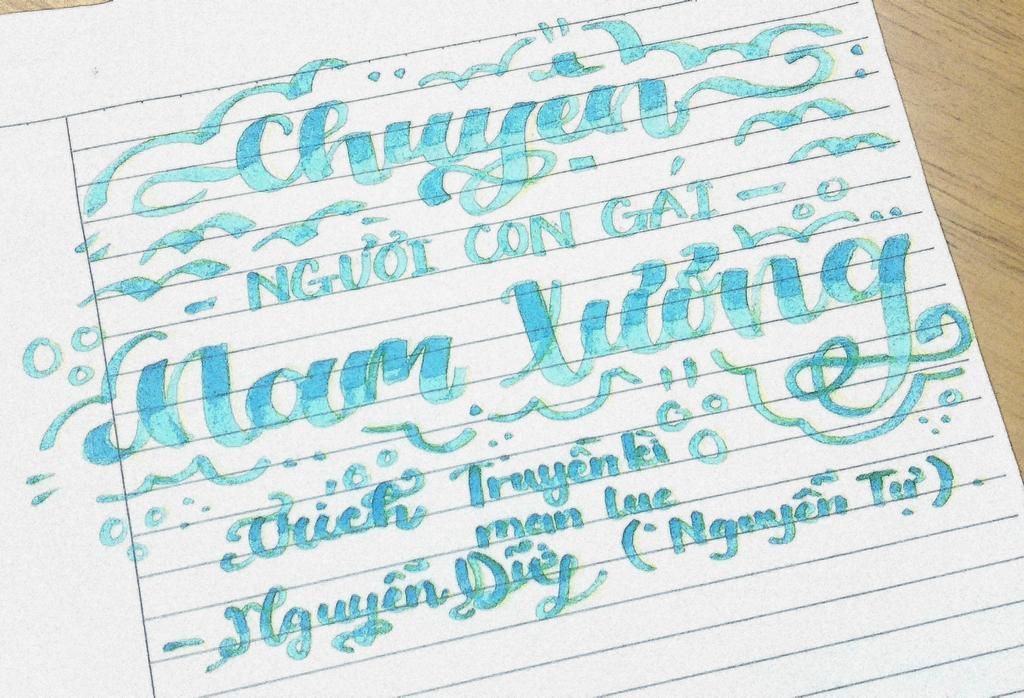 Chuyện
- NGƯỜI CON GÁI -
Nam Xương
Trích Truyền kì
man lục
- Nguyễn Dữ ( Nguyễn Tự ) -